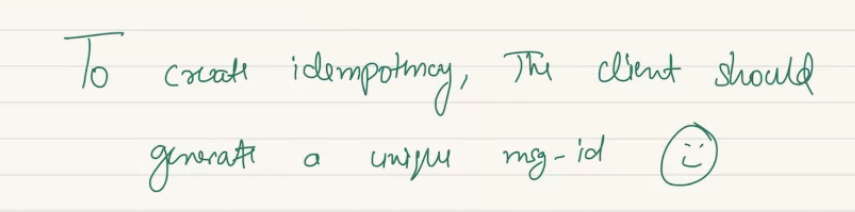 To create idempotency, The client should
generate a unique msg-id ☺